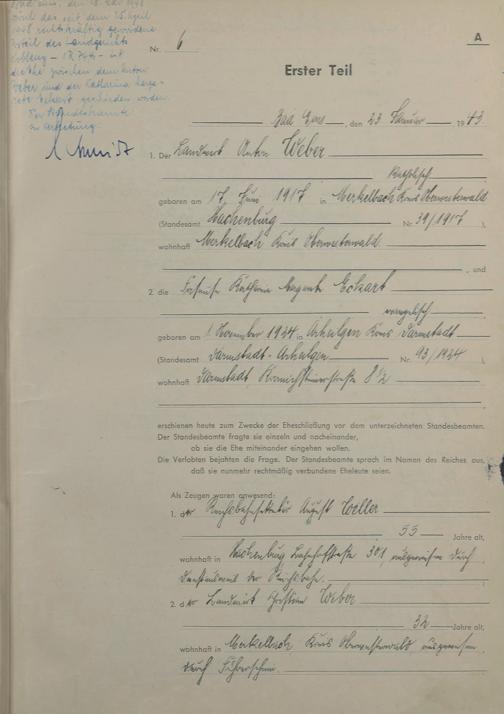 Bad Ems, den 18. Mai 1948
Durch das seit dem 15. April
1948 rechtskräftig gewordene
Urteil des Landgerichts
Koblenz
die Ehe zwischen dem Anton
Weber und der Katharina Marga-
rete Eckart geschieden worden.
Der Standesbeamte
In Vertretung
Schmidt
A
Nr. 6
Erster Teil
Bad Ems, den 23 Januar 1943
1. Der Landwirt Anton Weber
katholisch
geboren am 17. Juni 1917 in Merkelbach Kreis Oberwesterwald
(Standesamt Hachenburg Nr. 39/1917 ),
wohnhaft Merkelbach Kreis Oberwesterwald
, und
2. die Friseuse Katharina Margarete Eckart
evangelisch
geboren am 1 November 1924 in Arheilgen Kreis Darmstadt
(Standesamt Darmstadt-Arheilgen Nr. 93/1924 ),
wohnhaft Darmstadt, 8 1/2
erschienen heute zum Zwecke der Eheschließung vor dem unterzeichneten Standesbeamten.
Der Standesbeamte fragte sie einzeln und nacheinander,
ob sie die Ehe miteinander eingehen wollen.
Die Verlobten bejahten die Frage. Der Standesbeamte sprach im Namen des Reiches aus,
daß sie nunmehr rechtmäßig verbundene Eheleute seien.
Als Zeugen waren anwesend:
1. der Reichsbahnsekretär August Weller
55 Jahre alt,
wohnhaft in Hachenburg, Bahnhofstraße 301, ausgewiesen durch
Dienstausweis der Reichsbahn.
2. der Landwirt Christian Weber
32 Jahre alt,
wohnhaft in Merkelbach Kreis Oberwesterwald, ausgewiesen
durch Führerschein.